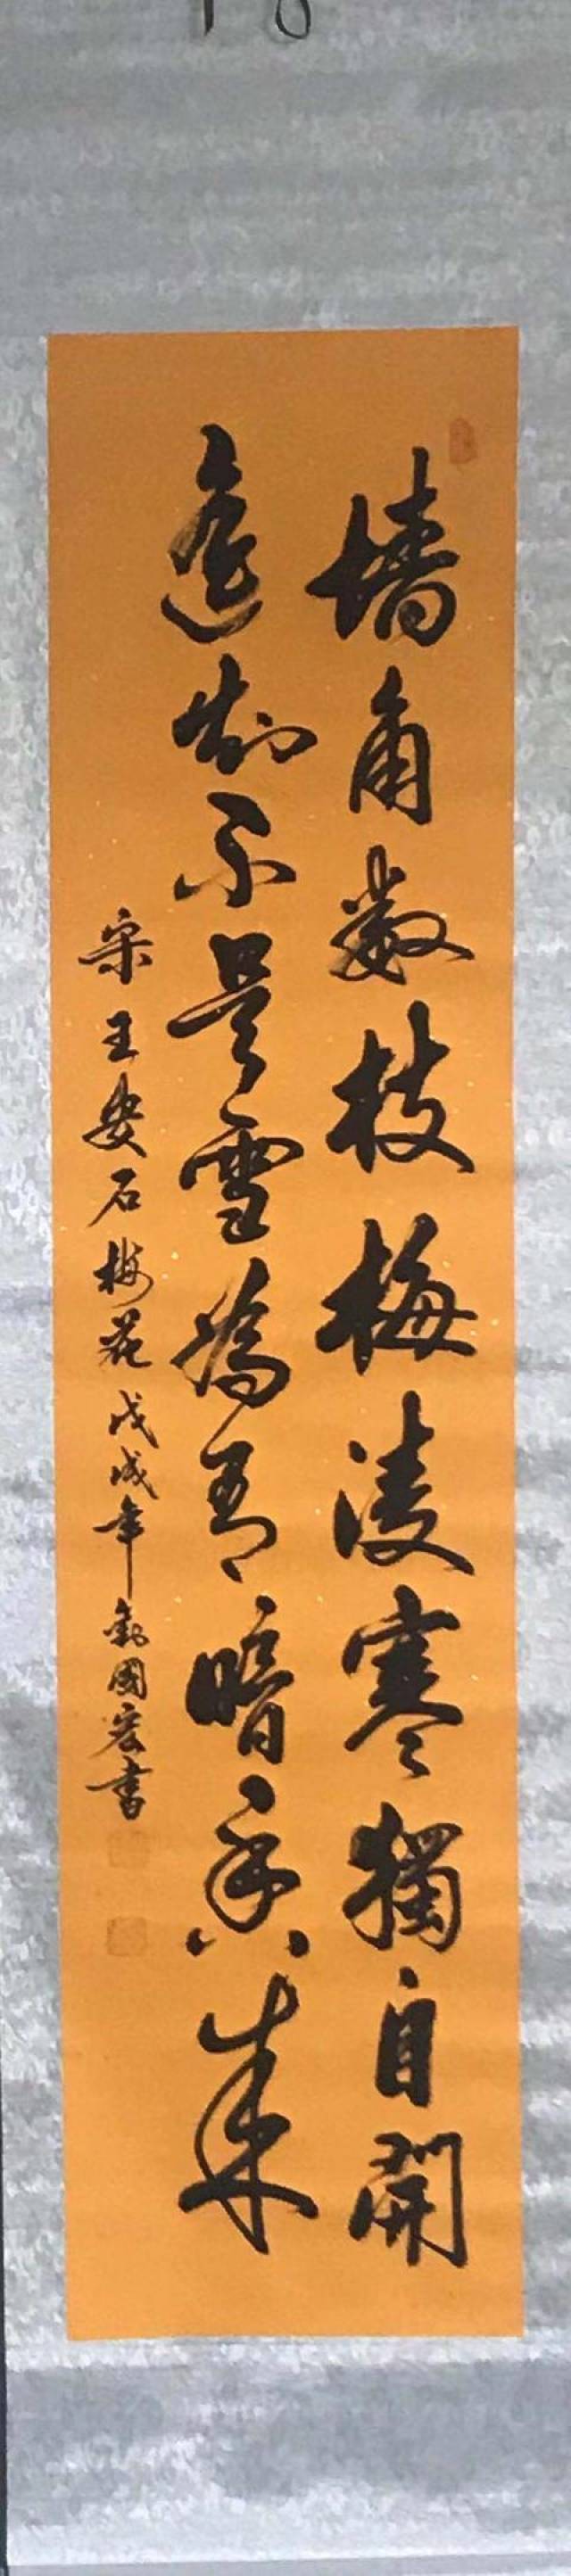 墙角数枝梅凌寒獨自開
遥知不是雪為有暗香来
宋王安石梅花戊戌年劉國宏書